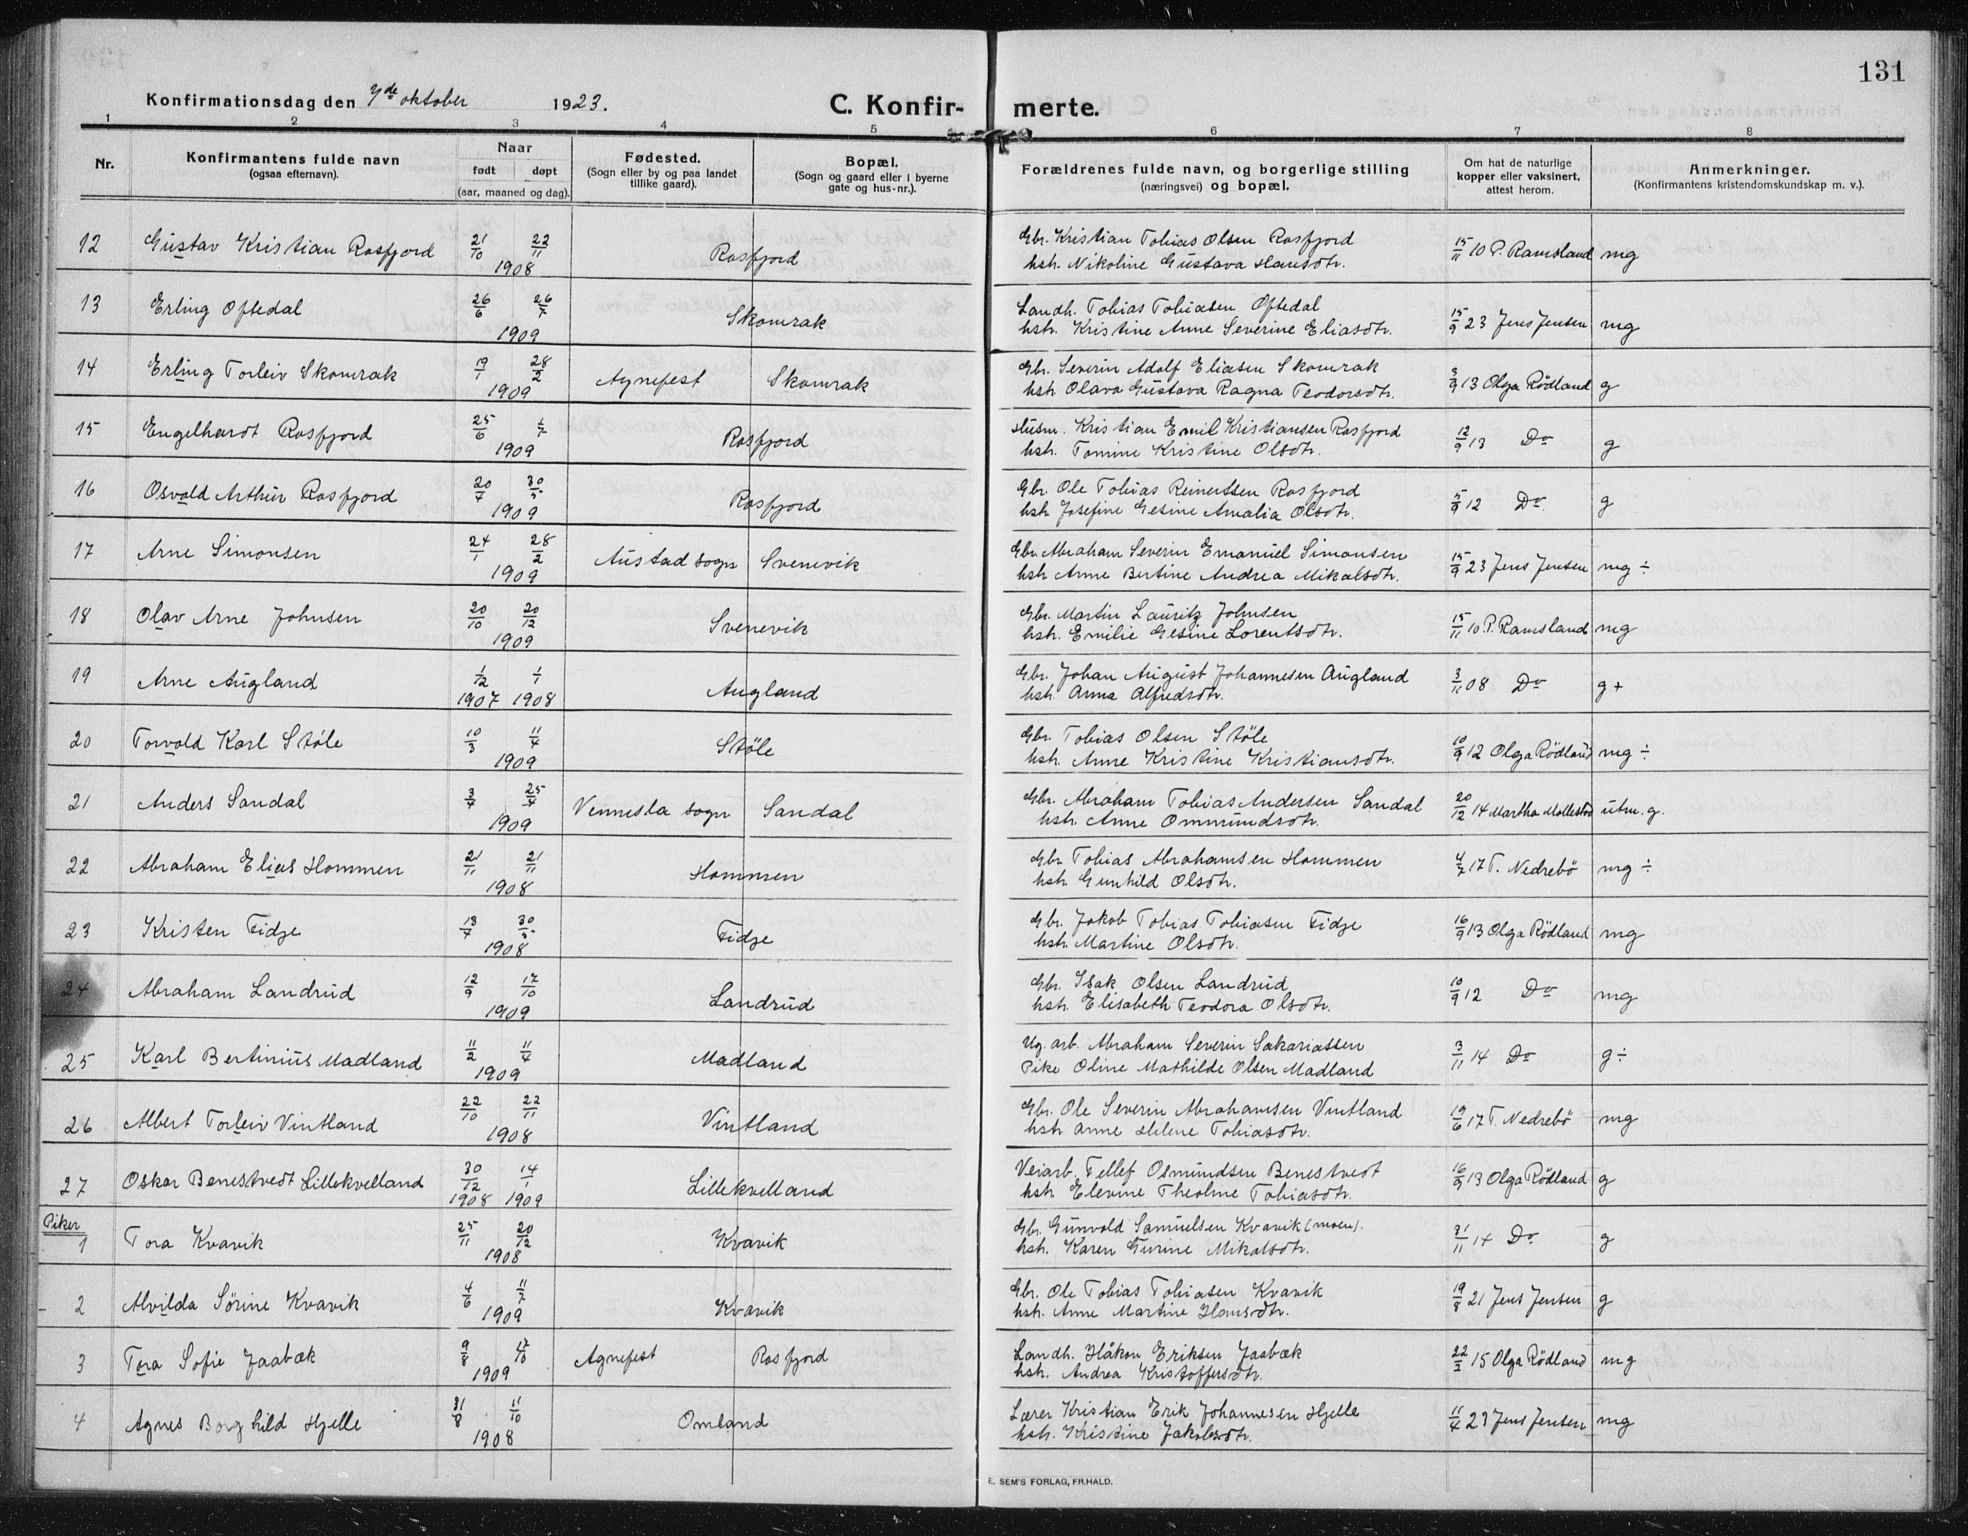 131
Konfirmationsdag den 7de oktober 1923. C. Konfir- merte.
1 2 3 4 5 6 7 8
Nr. Konfirmantens fulde navn (ogsaa efternavn). Naar født døpt (aar, maaned og dag). Fødested. (Sogn eller by og paa landet tillike gaard). Bopæl. (Sogn og gaard eller i byerne gate og hus-nr.). Forældrenes fulde navn, og borgerlige stilling (næringsvei) og bopæl. Om hat de naturlige kopper eller vaksinert, attest herom. Anmerkninger. (Konfirmantens kristendomskundskap m. v.).
12 Gustav Kristian Rosfjord 21/10 22/11 1908 Rosfjord Gbr. Kristian Tobias Olsen Rosfjord 15/11 10 P. Ramsland mg
hstr. Nikoline Gustava Hansdtr.
13 Erling Oftedal 26/6 26/7 1909 Skomrak Landh. Tobias Tobiasen Oftedal 15/9 23 Jens Jensen mg
hstr. Kristine Anne Severine Eliasdtr.
14 Erling Torleiv Skomrak 19/1 28/2 1909 Agnefest Skomrak Gbr. Severin Adolf Eliasen Skomrak 3/9 13 Olga Rødland g
hstr. Olava Gustava Ragna Teodorsdtr.
15 Engelhardt Rosfjord 25/6 1909 Rosfjord Husm. Kristian Emil Kristiansen Rosfjord 12/9 13 Do g
hstr. Tomine Kristine Olsdtr.
16 Osvald Arthur Rosfjord 20/4 30/5 1909 Rosfjord Gbr. Ole Tobias Reinertsen Rosfjord 5/9 12 Do g
hstr. Josefine Gesine Amalia Olsdtr.
17 Arne Simonsen 24/1 28/2 1909 Austad sogn Svenevik Gbr. Abraham Severin Emanuel Simonsen 15/9 23 Jens Jensen mg ÷
hstr. Anne Bertine Andrea Mikalsdtr.
18 Olav Arne Johnsen 20/10 20/12 1909 Svenevik Gbr. Martin Lauritz Johnsen 15/11 10 P. Ramsland mg
hstr. Emilie Gesine Lorentsdtr.
19 Arne Augland 1/12 1907 1/1 1908 Augland Gbr. Johan August Johannesen Augland 3/11 08 Do g +
hstr. Anna Alfredsdtr.
20 Torvald Karl Støle 10/3 11/4 1909 Støle Gbr. Tobias Olsen Støle 10/9 12 Olga Rødland mg ÷
hstr. Anne Kristine Kristiansdtr.
21 Anders Sandal 3/4 25/4 1909 Vennesla sogn Sandal Gbr. Abraham Tobias Andersen Sandal 20/12 14 Martha utm. g.
hstr. Anne Ommundsdtr.
22 Abraham Elias Hommen 21/11 21/11 1908 Hommen Gbr Tobias Abrahamsen Hommen 4/7 17 T. Nedrebø mg ÷
hstr Gunhild Olsdtr.
23 Kristen Fidje 13/4 30/5 1908 Fidje Gbr. Jakob Tobias Tobiasen Fidje 16/9 13 Olga Rødland mg
hstr. Martine Olsdtr.
24 Abraham Landrud 12/9 17/10 1909 Landrud Gbr. Isak Olsen Landrud 10/9 12 Do mg
hstr. Elisabeth Teodora Olsdtr.
25 Karl Bertinius Madland 11/2 11/4 1909 Madland Ug. arb. Abraham Severin Sakariassen 3/11 14 Do g ÷
Pike Oline Mathilde Olsen Madland
26 Albert Torleiv Vintland 22/10 22/11 1908 Vintland Gbr. Ole Severin Abrahamsen Vintland 19/6 17 T. Nedrebø mg
hstr Anne Helene Tobiasdtr.
27 Oskar Benestvedt Lillekvelland 30/12 1908 14/1 1909 Lillekvelland Veiarb. Tellef Osmundsen Benestvedt 16/9 13 Olga Rødland g
hstr Elevine Tobiasdtr.
Piker
1 Tora Kvavik 25/11 20/12 1908 Kvavik Gbr. Gunvald Samuelsen Kvavik (moen). 14 Do g
hstr. Karen Gurine Mikalsdtr.
2 Alvilda Sørine Kvavik 4/6 11/7 1909 Kvavik Gbr. Ole Tobias Tobiasen Kvavik 19/8 21 Jens Jensen g
hstr. Anne Martine Hansdtr.
3 Tora Sofie Jaabæk 9/8 17/10 1909 Agnefest Rosfjord Landh. Håkon Eriksen Jaabæk 15 Olga Rødland mg
hstr. Andrea Kristoffersdtr.
4 Agnes Borghild Hjelle 31/8 11/10 1908 Omland Lærer Kristian Erik Johannesen Hjelle 11/4 23 Jens Jensen mg
hstr. Kristine Jakobsdtr.
E. SEM'S FORLAG, FR.HALD.